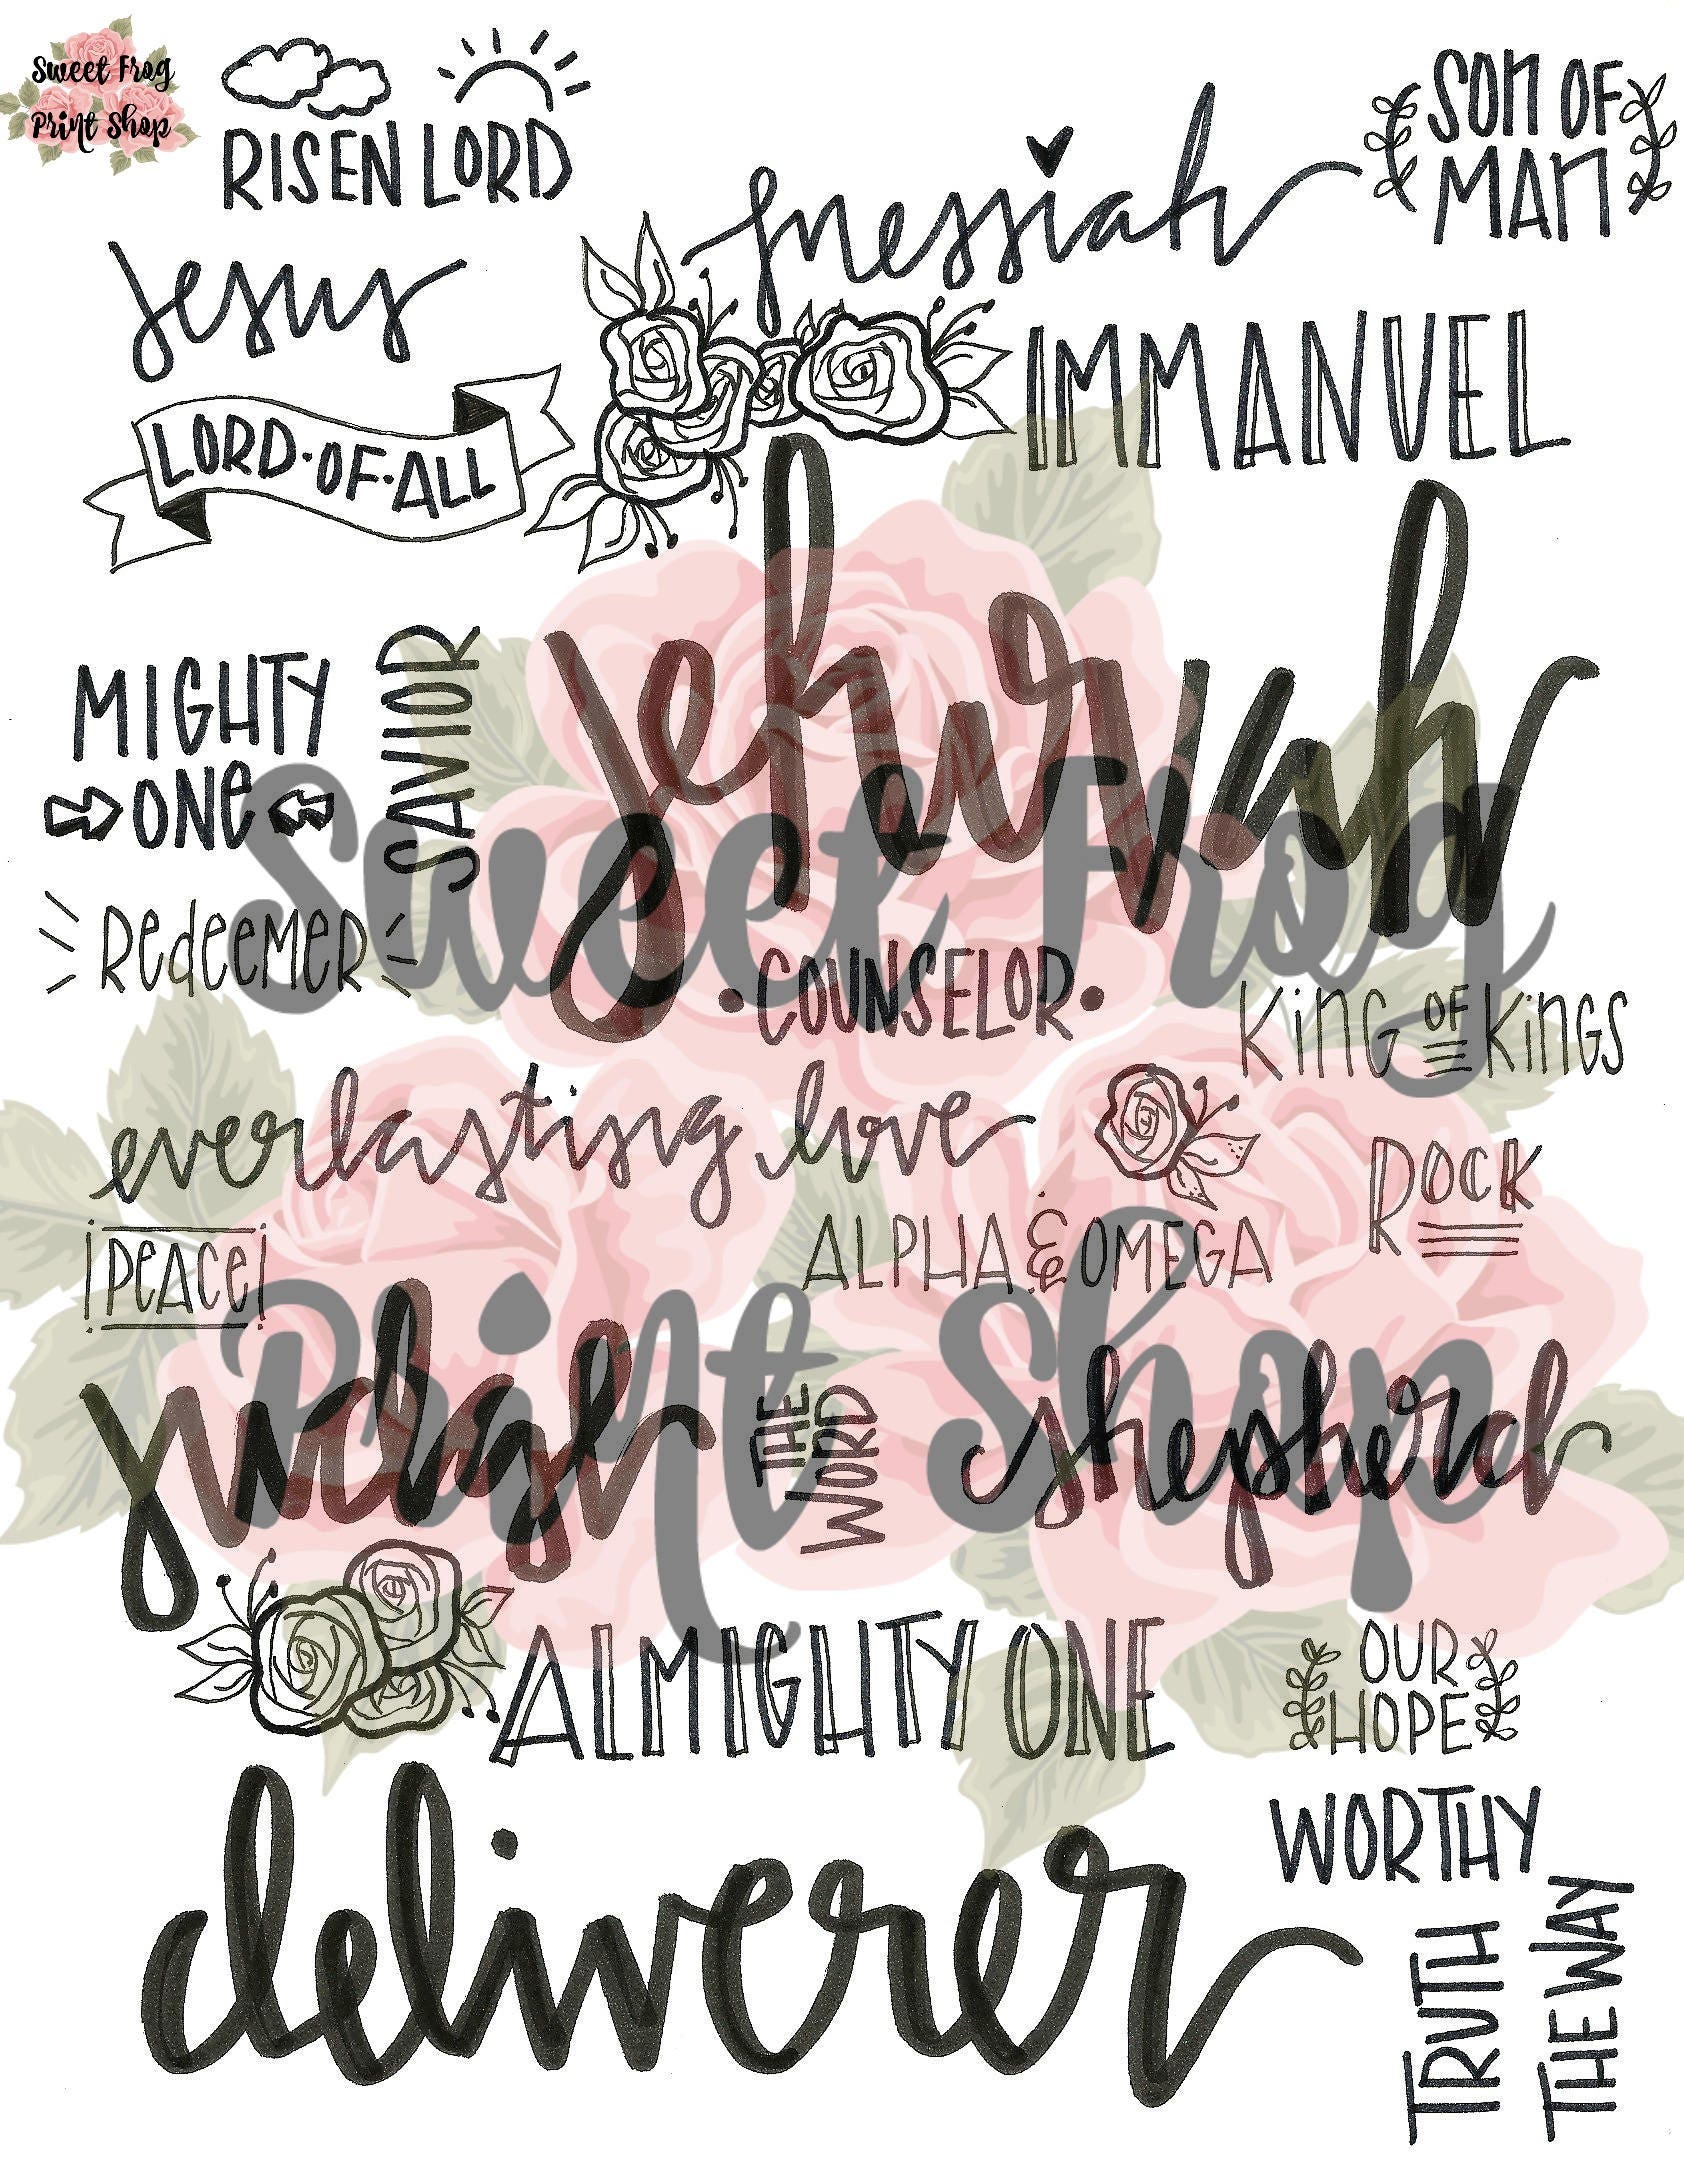 Sweet Frog
Print Shop
RISEN LORD
SON OF
MAN
messiah
jesus
IMMANUEL
LORD·OF·ALL
jehovah
MIGHTY
ONe
SAVIOR
Redeemer
Sweet Frog
•COUNSELOR•
King OF Kings
everlasting love
ROCK
PeACe
ALPHA & OMEGA
judge
Print Shop
THE
WORD
shepherd
ALMIGHTY ONE
OUR
HOPE
deliverer
WORTHY
TRUTH
THE WAY